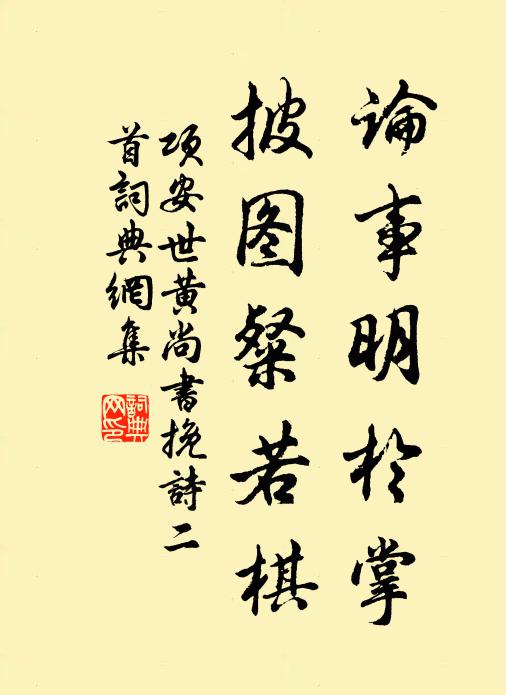 論事明於掌
披图粲若棋
项安世黄尚書挽詩二
首詞典網集
詞典
网印